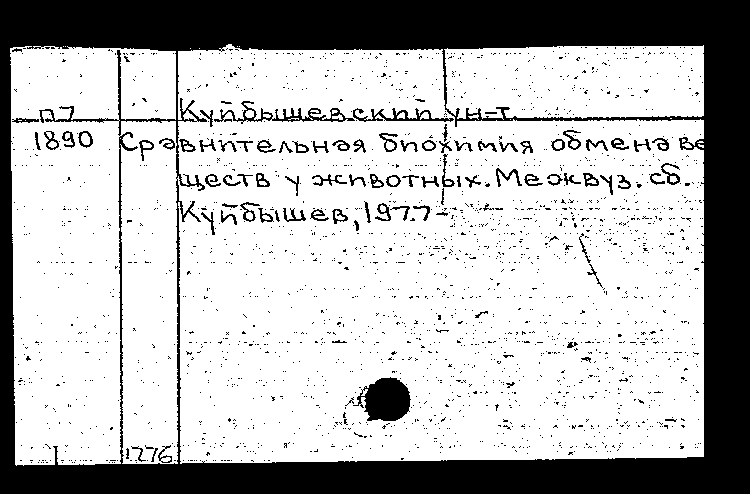 п7 Куйбышевский ун-т.
1890 Сравнительная биохимия обмена ве
ществ у животных. Межвуз. сб.
Куйбышев, 1977-
1776